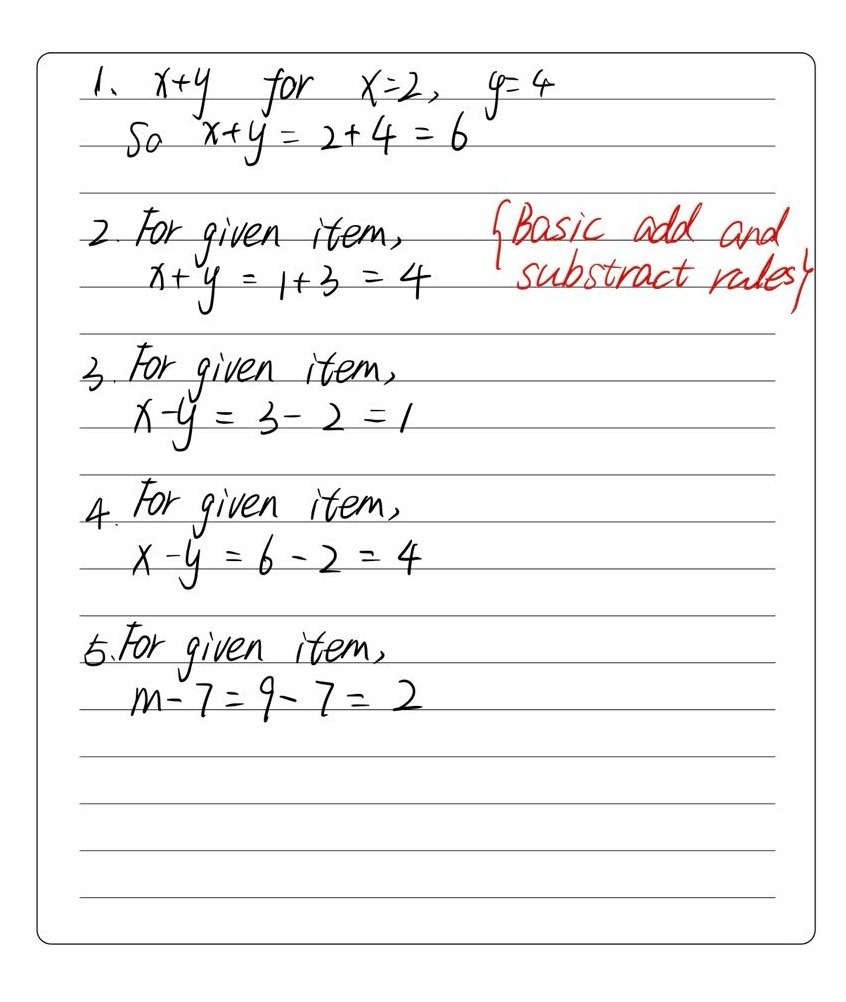 1、 x+y for x=2, y=4
So x+y = 2+4 = 6
2. For given item,
x+y = 1+3 = 4
{Basic add and
substract rules}
3. For given item,
x-y = 3- 2 = 1
4. For given item,
x-y = 6-2 = 4
5、For given item,
m-7=9-7= 2